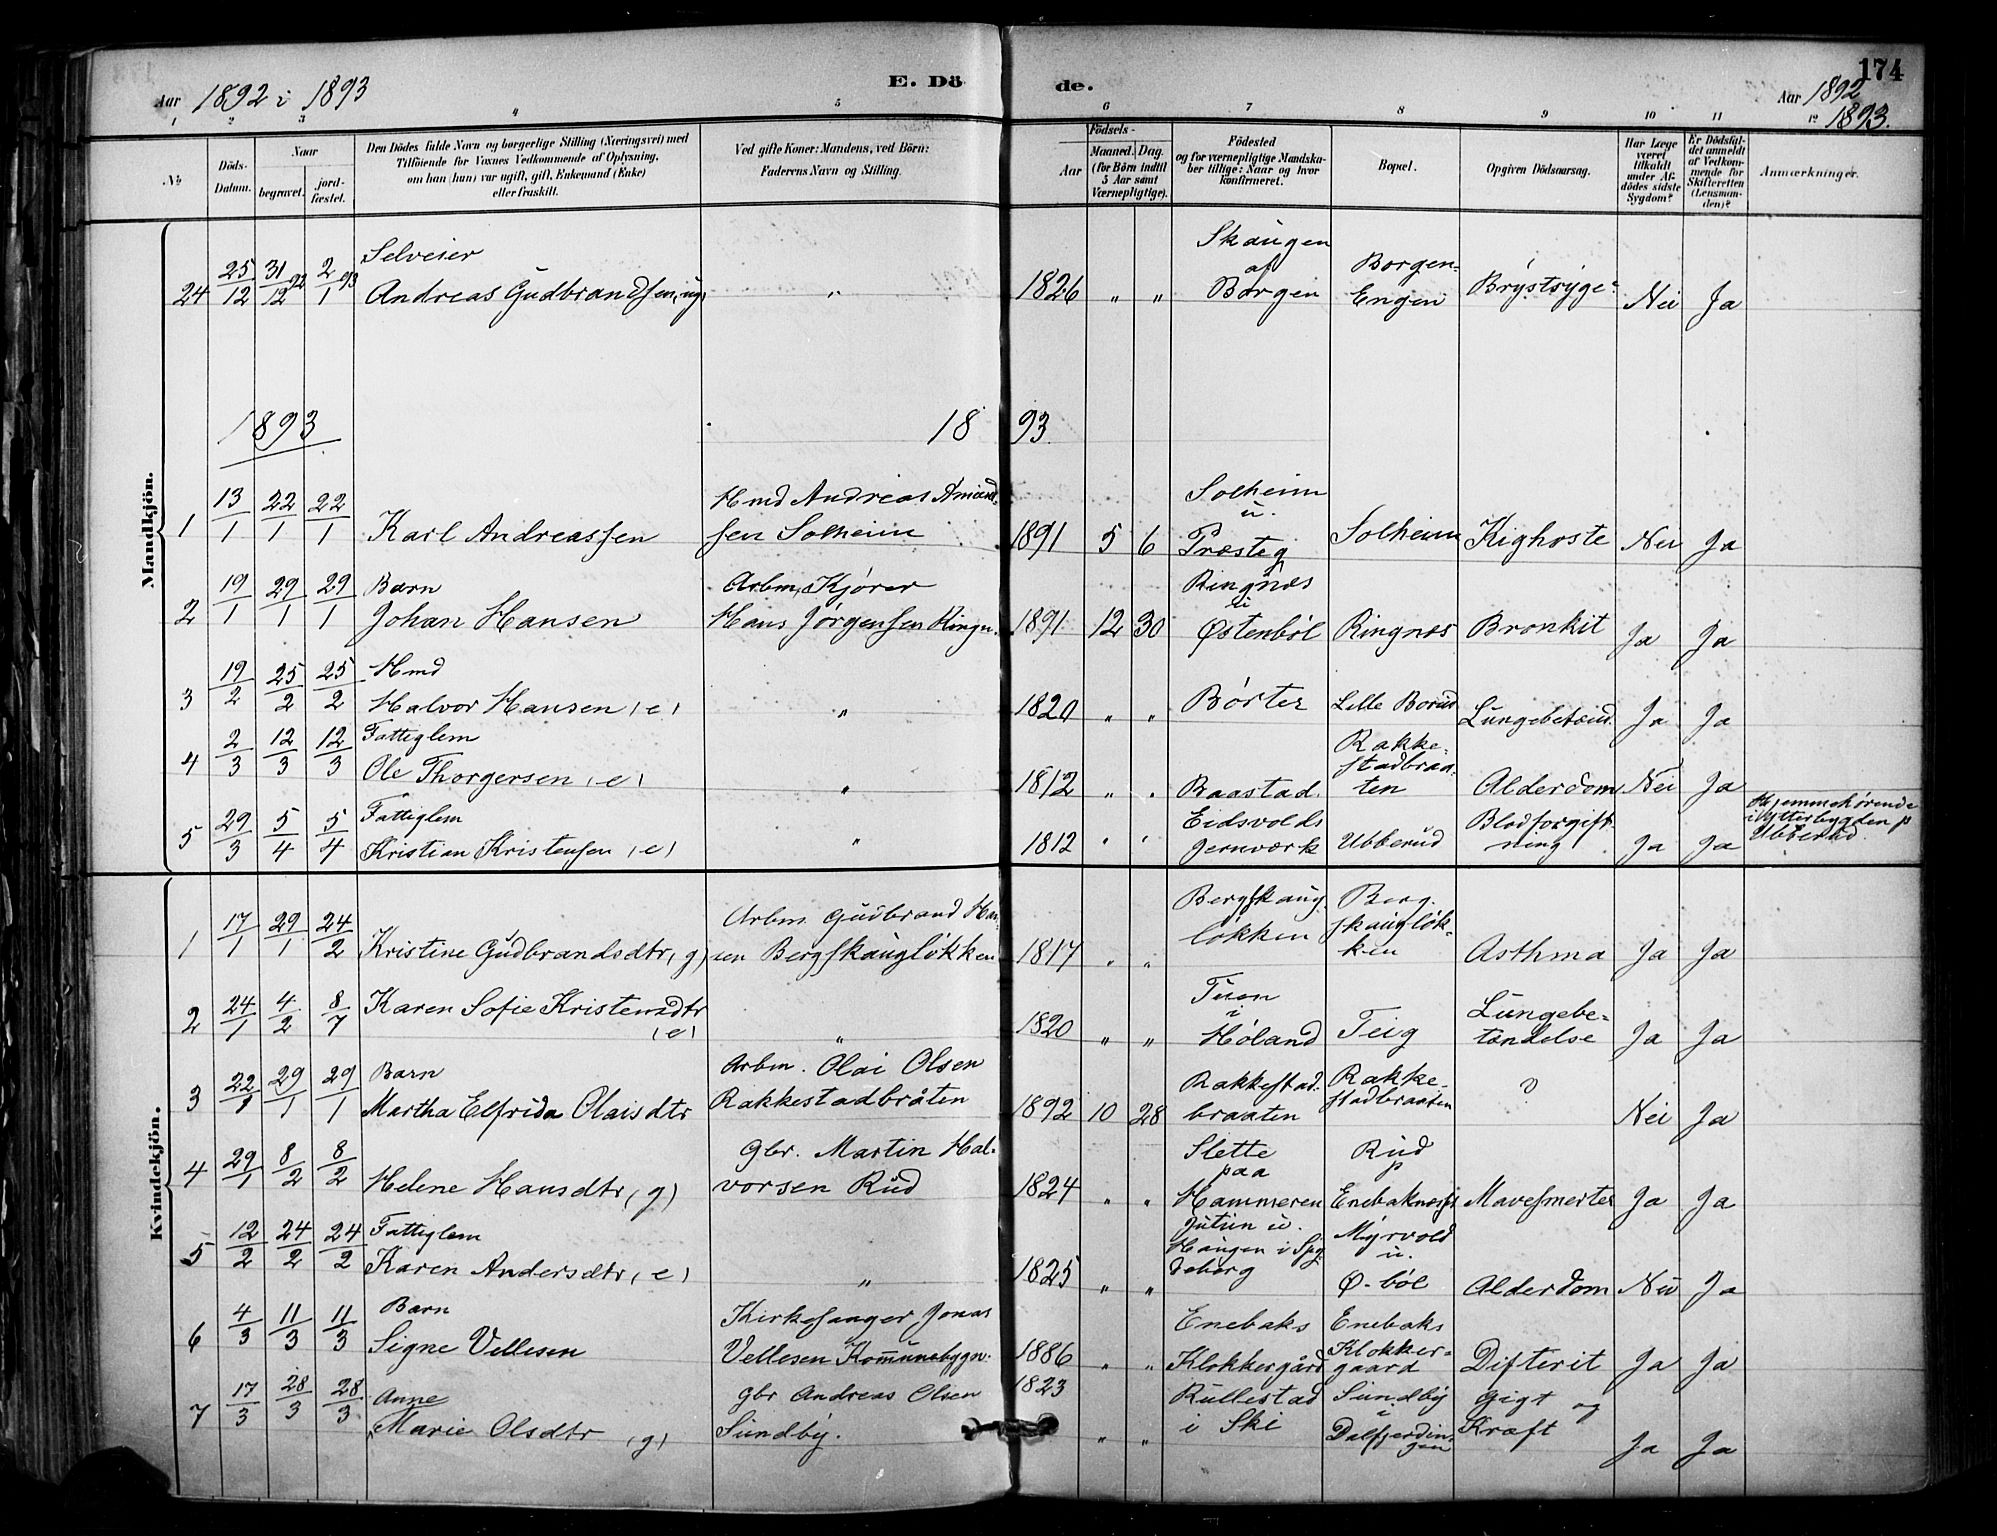 174
Aar 1892 i 1893
E. Dö
de.
Aar 1892
1893.
1 2 3 4 5 6 7 8 9 10 11 12
No
Döds-Datum.
Naar
begravet.
jord-fæstet.
Den Dödes fulde Navn og borgerlige Stilling (Næringsvei) med
Tilföiende for Voxnes Vedkommende af Oplysning,
om han (hun) var ugift, gift, Enkemand (Enke)
eller fraskilt.
Ved gifte Koner: Mandens, ved Börn:
Faderens Navn og Stilling.
Födsels-
Aar
Maaned. Dag.
(for Börn indtil
5 Aar samt
Værnepligtige).
Födested
og for værnepligtige Mandska-
ber tillige: Naar og hvor
konfirmeret.
Bopæl.
Opgiven Dödsaarsag.
Har Læge
været
tilkaldt
under Af-
dödes sidste
Sygdom?
Er Dödsfal-
det anmeldt
af Vedkom-
mende for
Skifteretten
(Lensman-
den)?
Anmærkninger.
Mandkjön.
24 25/12 31/12 92 2/1 93 Selveier
Andreas Gudbrandsen, ug, " 1826 " " Skaugen
af
Borgen Borgen-
Engen Brystsyge Nei Ja
1893 18 93
1 13/1 22/1 22/1 Karl Andreassen Hmd Andreas Amund-
sen Solheim 1891 5 6 Solheim
u.
Præsteg Solheim Kighoste Nei Ja
2 19/1 29/1 29/1 Barn
Johan Hansen Arbm, Kjører
Hans Jørgensen Ringn. 1891 12 30 Ringnæs
u
Østenbøl Ringnæs Bronkit Ja Ja
3 19/2 25/2 25/2 Hmd
Halvor Hansen (e) " 1820 " " Børter Lille Borud Lungebetænd. Ja Ja
4 2/3 12/3 12/3 Fattiglem
Ole Thorgersen (e) " 1812 " " Baastad. Rakke-
stadbraa-
ten Alderdom Nei Ja
5 29/3 5/4 5/4 Fattiglem
Kristian Kristensen (e) " 1812 " " Eidsvolds
Jernværk Ubberud Blodforgift-
ning Ja Ja Hjemmehørende
i Ytterbygden p
Ubberud.
Kvindekjön.
1 17/1 29/1 24/2 Kristine Gudbrandsdtr, (g) Arbm Gudbrand Han-
sen Bergskaugløkken 1817 " " Bergskaug-
løkken Berg-
skaugløk-
ken Asthma Ja Ja
2 24/1 4/2 8/7 Karen Sofie Kristensdtr
(e) " 1820 " " Tuen
i
Høland Teig Lungebe-
tændelse Ja Ja
3 22/1 29/1 29/1 Barn
Martha Elfrida Olaisdtr Arbm. Olai Olsen
Rakkestadbråten 1892 10 28 Rakkestad-
braaten Rakke-
stadbraaten ? Nei Ja
4 29/1 8/2 8/2 Helene Hansdtr, (g) Gbr. Martin Hal-
vorsen Rud 1824 " " Slette
paa
Hammeren Rud
p
Enebaknesset Mavesmerter Ja Ja
5 12/2 24/2 24/2 Fattiglem
Karen Andersdtr, (e) " 1825 " " u.
Haugen i Spy
deberg Myrvold
u.
Ø-bøl Alderdom Nei Ja
6 4/3 11/3 11/3 Barn
Signe Vellesen Kirkesanger Jonas
Vellesen 1886 " " Enebaks
Klokkergård Enebaks
Klokker-
gaard Difterit Ja Ja
7 17/3 28/3 28/3 Anne
Marie Olsdtr (g) Gbr Andreas Olsen
Sundby. 1823 " " Rullestad
i Ski Sundby
i
Dalfjerdin-
gen Gigt og
Kræft Ja Ja